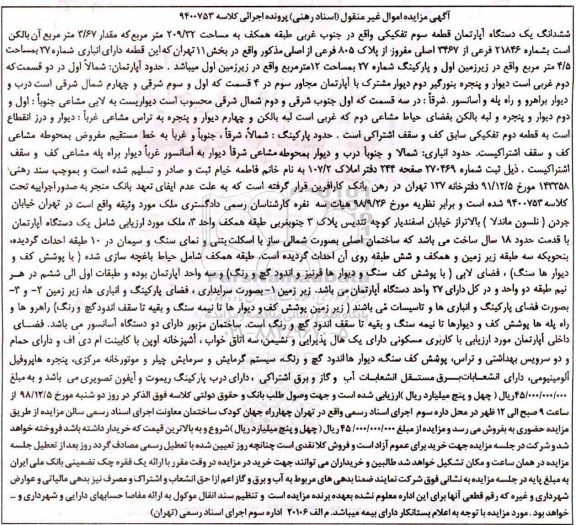 آگهی مزایده اموال غیر منقول (اسناد رهنی) پرونده اجرائی کلاسه ۹۴۰۰۷۵۳
ششدانگ یک دستگاه آپارتمان قطعه سوم تفکیکی واقع در جنوب غربی طبقه همکف به مساحت ۲۰۹/۳۲ متر مربع که مقدار ۳/۶۷ متر مربع آن بالکن
است بشماره ۲۱۸۴۶ فرعی از ۳۴۶۷ اصلی مفروز از پلاک ۸۰۵ فرعی از اصلی مذکور واقع در بخش ۱۱ تهران که این قطعه دارای انباری شماره ۲۷ بمساحت
۴/۵ متر مربع واقع در زیرزمین اول و پارکینگ شماره ۲۷ بمساحت ۱۲مترمربع واقع در زیرزمین اول میباشد . حدود آپارتمان: شمالاً اول در دو قسمت که
دوم غربی است دیوار و پنجره بنورگیر دوم دیوار مشترک با آپارتمان مجاور سوم در ۴ قسمت که اول و سوم شرقی و چهارم شمال شرقی است درب و
دیوار براهرو و راه پله و آسانسور .شرقاً : در سه قسمت که اول جنوب شرقی و دوم شمال شرقی محسوب است دیواریست به لابی مشاعی جنوباً : اول و
دوم دیوار و پنجره و لبه بالکن بفضای حیاط مشاعی دوم که غربی است لبه بالکن و چهارم دیوار و پنجره به تراس مشاعی غرباً : دیوار و درز انقطاع
است به قطعه دوم تفکیکی سابق کف و سقف اشتراکی است . حدود پارکینگ : شمالاً، شرقاً ، جنوباً و غرباً به خط مستقیم مفروض بمحوطه مشاعی
کف و سقف اشتراکیست. حدود انباری: شمالا و جنوباً درب و دیوار بمحوطه مشاعی شرقاً دیوار به آسانسور غرباً دیوار براه پله مشاعی کف و سقف
اشتراکیست . ذیل ثبت شماره ۲۷۰۴۶۹ صفحه ۲۴۴ دفتر املاک ۱۰۷/۲ به نام خانم فاطمه خیام ثبت و صادر و تسلیم شده است و بموجب سند رهنی
۱۴۳۳۵۸ مورخ ۹۱/۱۲/۵ دفترخانه ۱۲۷ تهران در رهن بانک کارآفرین قرار گرفته است که به علت عدم ایفای تعهد بانک منجر به صدور اجراییه تحت
کلاسه ۹۴۰۰۷۵۳ شده است و برابر نظریه مورخ ۹۸۹/۲۶ هیات سه نفره کارشناسان رسمی دادگستری ملک مورد وثیقه واقع است در تهران خیابان
جردن ( نلسون ماندلا ) بالاتراز خیابان اسفندیار کوچه تندیس پلاک ۳ جنوبغربی طبقه همکف واحد ۳، ملک مورد ارزیابی شامل یک دستگاه آپارتمان
با قدمت حدود ۱۸ سال ساخت می باشد که ساختمان اصلی بصورت شمالی ساز با اسکلت بتنی و نمای سنگ و سیمان در ۱۰ طبقه احداث گردیده،
بنحویکه سه طبقه زیر زمین و همکف و شش طبقه روی آن احداث گردیده است. طبقه همکف شامل حیاط باغچه سازی شده ( با پوشش کف و
دیوار ها سنگ) ، فضای لابی ( با پوشش کف سنگ و دیوار ها قرنیز و اندود گچ و رنگ) و سه واحد آپارتمان بوده و طبقات اول الی ششم در هر
نیم طبقه دو واحد و در کل دارای ۲۷ واحد دستگاه آپارتمان می باشد. زیر زمین ۱- بصورت سرایداری ، فضای پارکینگ و انباری ها، زیر زمین ۲- و ۳-
بصورت فضای پارکینگ و انباری ها و تاسیسات می باشند ( زیر زمین پوشش کف و دیوار ها تا نیمه سنگ و بقیه تا سقف اندود گچ و رنگ) راهرو ها و
راه پله ها پوشش کف و دیوارها تا نیمه سنگ و بقیه تا سقف اندود گچ و رنگ است. ساختمان مزبور دارای دو دستگاه آسانسور می باشد. فضای
داخلی آپارتمان مورد ارزیابی با کاربری مسکونی دارای یک هال پذیرایی و نشیمن سه اتاق خواب ، آشپزخانه اوپن با کابینت ام دی اف و دارای حمام
و دو سرویس بهداشتی و تراس، پوشش کف سنگ، دیوار ها اندود گچ و رنگ، سیستم گرمایش و سرمایش چیلر و موتورخانه مرکزی، پنجره هاپروفیل
آلومینیومی، دارای انشعابات برق مستقل انشعابات آب و گاز و برق اشتراکی ، دارای درب پارکینگ ریموت و آیفون تصویری می باشد و به مبلغ
۴۵/۰۰۰/۰۰۰/۰۰۰ریال (چهل و پنج میلیارد ریال )ارزیابی شده است و جهت وصول طلب بانک و حقوق دولتی کلاسه فوق الذکر در روز دو شنبه مورخ ۹۸/۱۲/۵ از
ساعت ۹ صبح الی ۱۲ ظهر در محل داره سوم اجرای اسناد رسمی واقع در تهران چهارراه جهان کودک ساختمان معاونت اجرای اسناد رسمی سالن مزایده از طریق
مزایده حضوری به فروش می رسد و مزایده از مبلغ ۴۵/۰۰۰/۰۰۰/۰۰۰ ریال (چهل و پنج میلیارد ریال )شروع و به بالاترین قیمت که خریدار داشته باشد فروخته خواهد
شد و شرکت در جلسه مزایده جهت خرید برای عموم آزاد است و فروش کلا نقدی است چنانچه روز تعیین شده با تعطیل رسمی مصادف گردد روز بعد از تعطیل جلسه
مزایده در همان ساعت و مکان تشکیل خواهد شد طالبین و خریداران می توانند جهت خرید در مزایده در وقت مقرر با ارائه یک فقره چک تضمینی بانک ملی ایران
به مبلغ پایه در جلسه مزایده به نشانی فوق شرکت نمایند ضمنا بدهی های مربوط به آب و برق و گاز اعم از حق انشعاب و اشتراک و مصرف نیز بدهی مالیاتی و عوارض
شهرداری و غیره که رقم قطعی آنها برای این اداره معلوم نشده بعهده برنده مزایده است و تنظیم سند انتقال موکول به ارائه مفاصا حسابهای دارایی و شهرداری و ...
خواهد بود . مورد مزایده با توجه به اعلام بستانکار دارای بیمه میباشد. م الف ۲۰۱۰۶ اداره سوم اجرای اسناد رسمی (تهران)